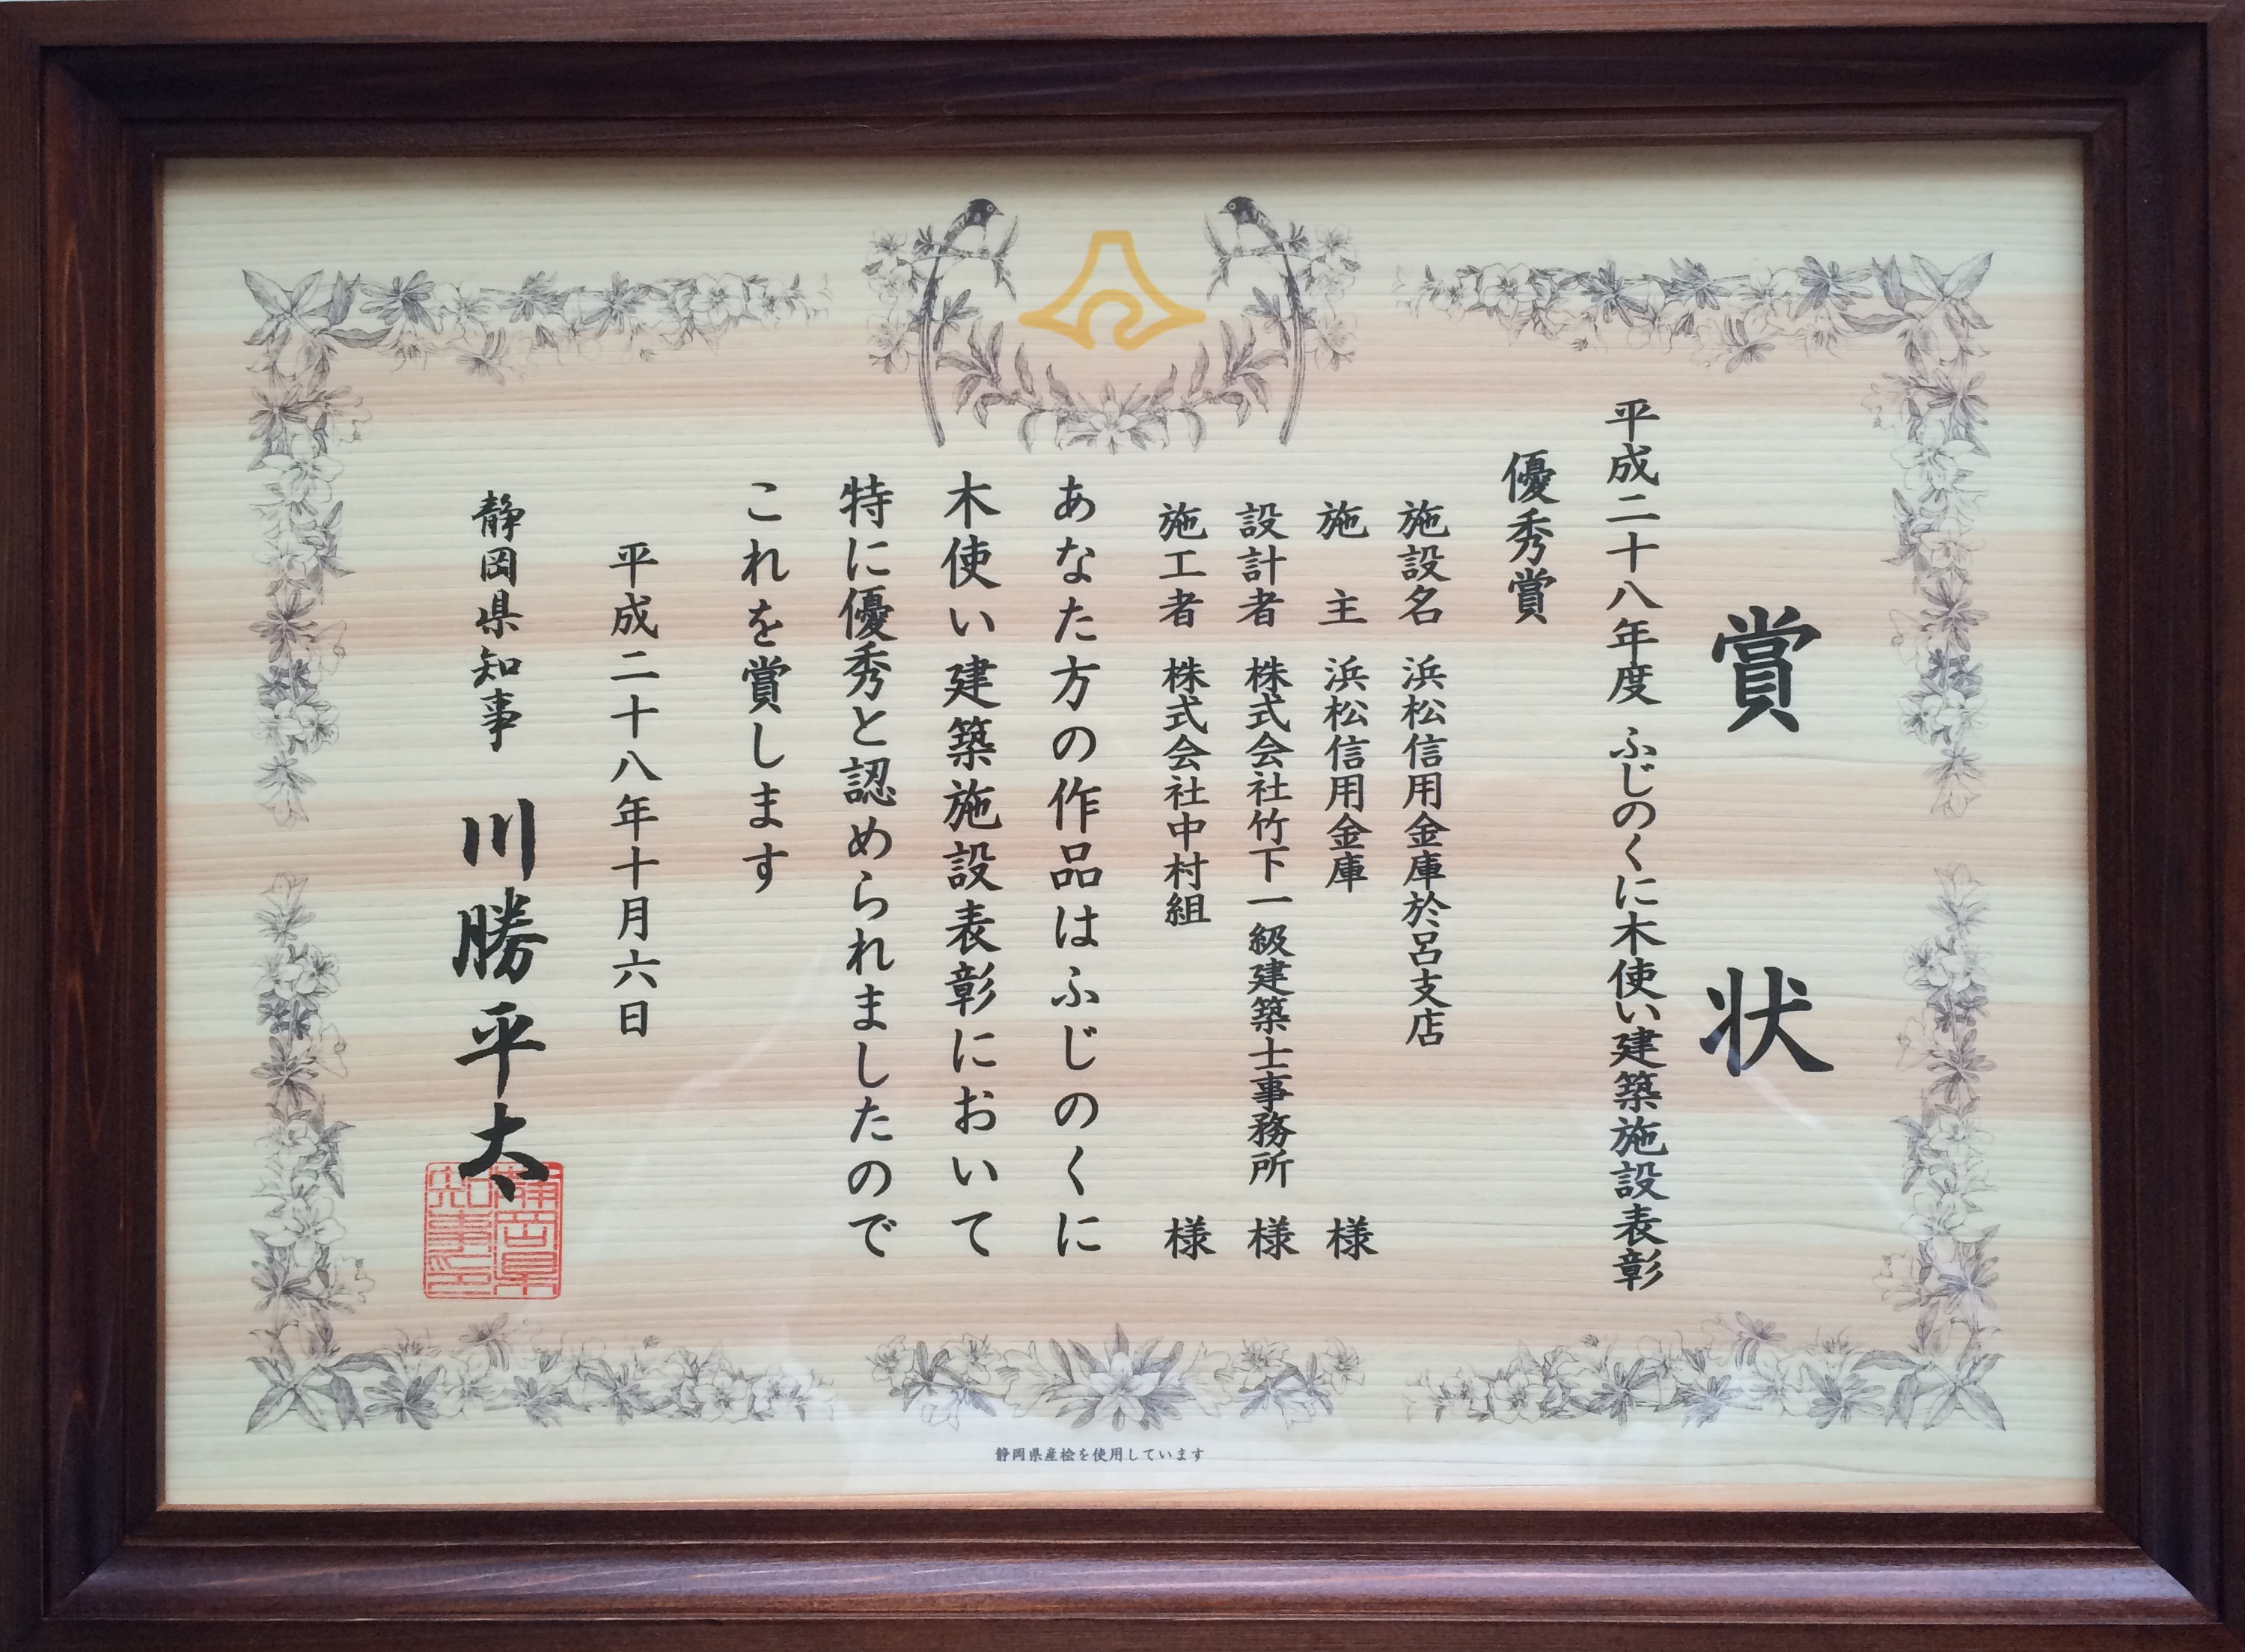 賞状
平成二十八年度 ふじのくに木使い建築施設表彰
優秀賞
施設名 浜松信用金庫於呂支店
施主 浜松信用金庫 様
設計者 株式会社竹下一級建築士事務所 様
施工者 株式会社中村組 様
あなた方の作品はふじのくに
木使い建築施設表彰において
特に優秀と認められましたので
これを賞します
平成二十八年十月六日
静岡県知事 川勝平太
静岡県
知事印
静岡県産桧を使用しています